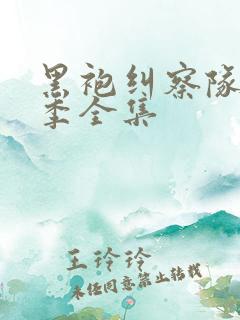 黑袍纠察队
季全集
王玲玲
未经同意禁止转载